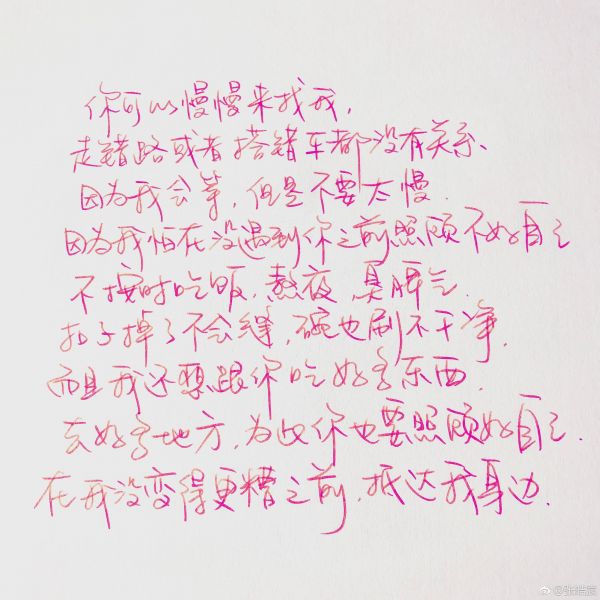 你可以慢慢来找我，
走错路或者搭错车都没有关系、
因为我会等，但是不要太慢．
因为我怕在没遇到你之前照顾不好自己
不按时吃饭．熬夜 臭脾气．
扣子掉了不会缝，碗也刷不干净．
而且我还要跟你吃好多东西．
去好多地方，为此你也要照顾好自己．
在我没变得更糟之前．抵达我身边．
@张皓宸